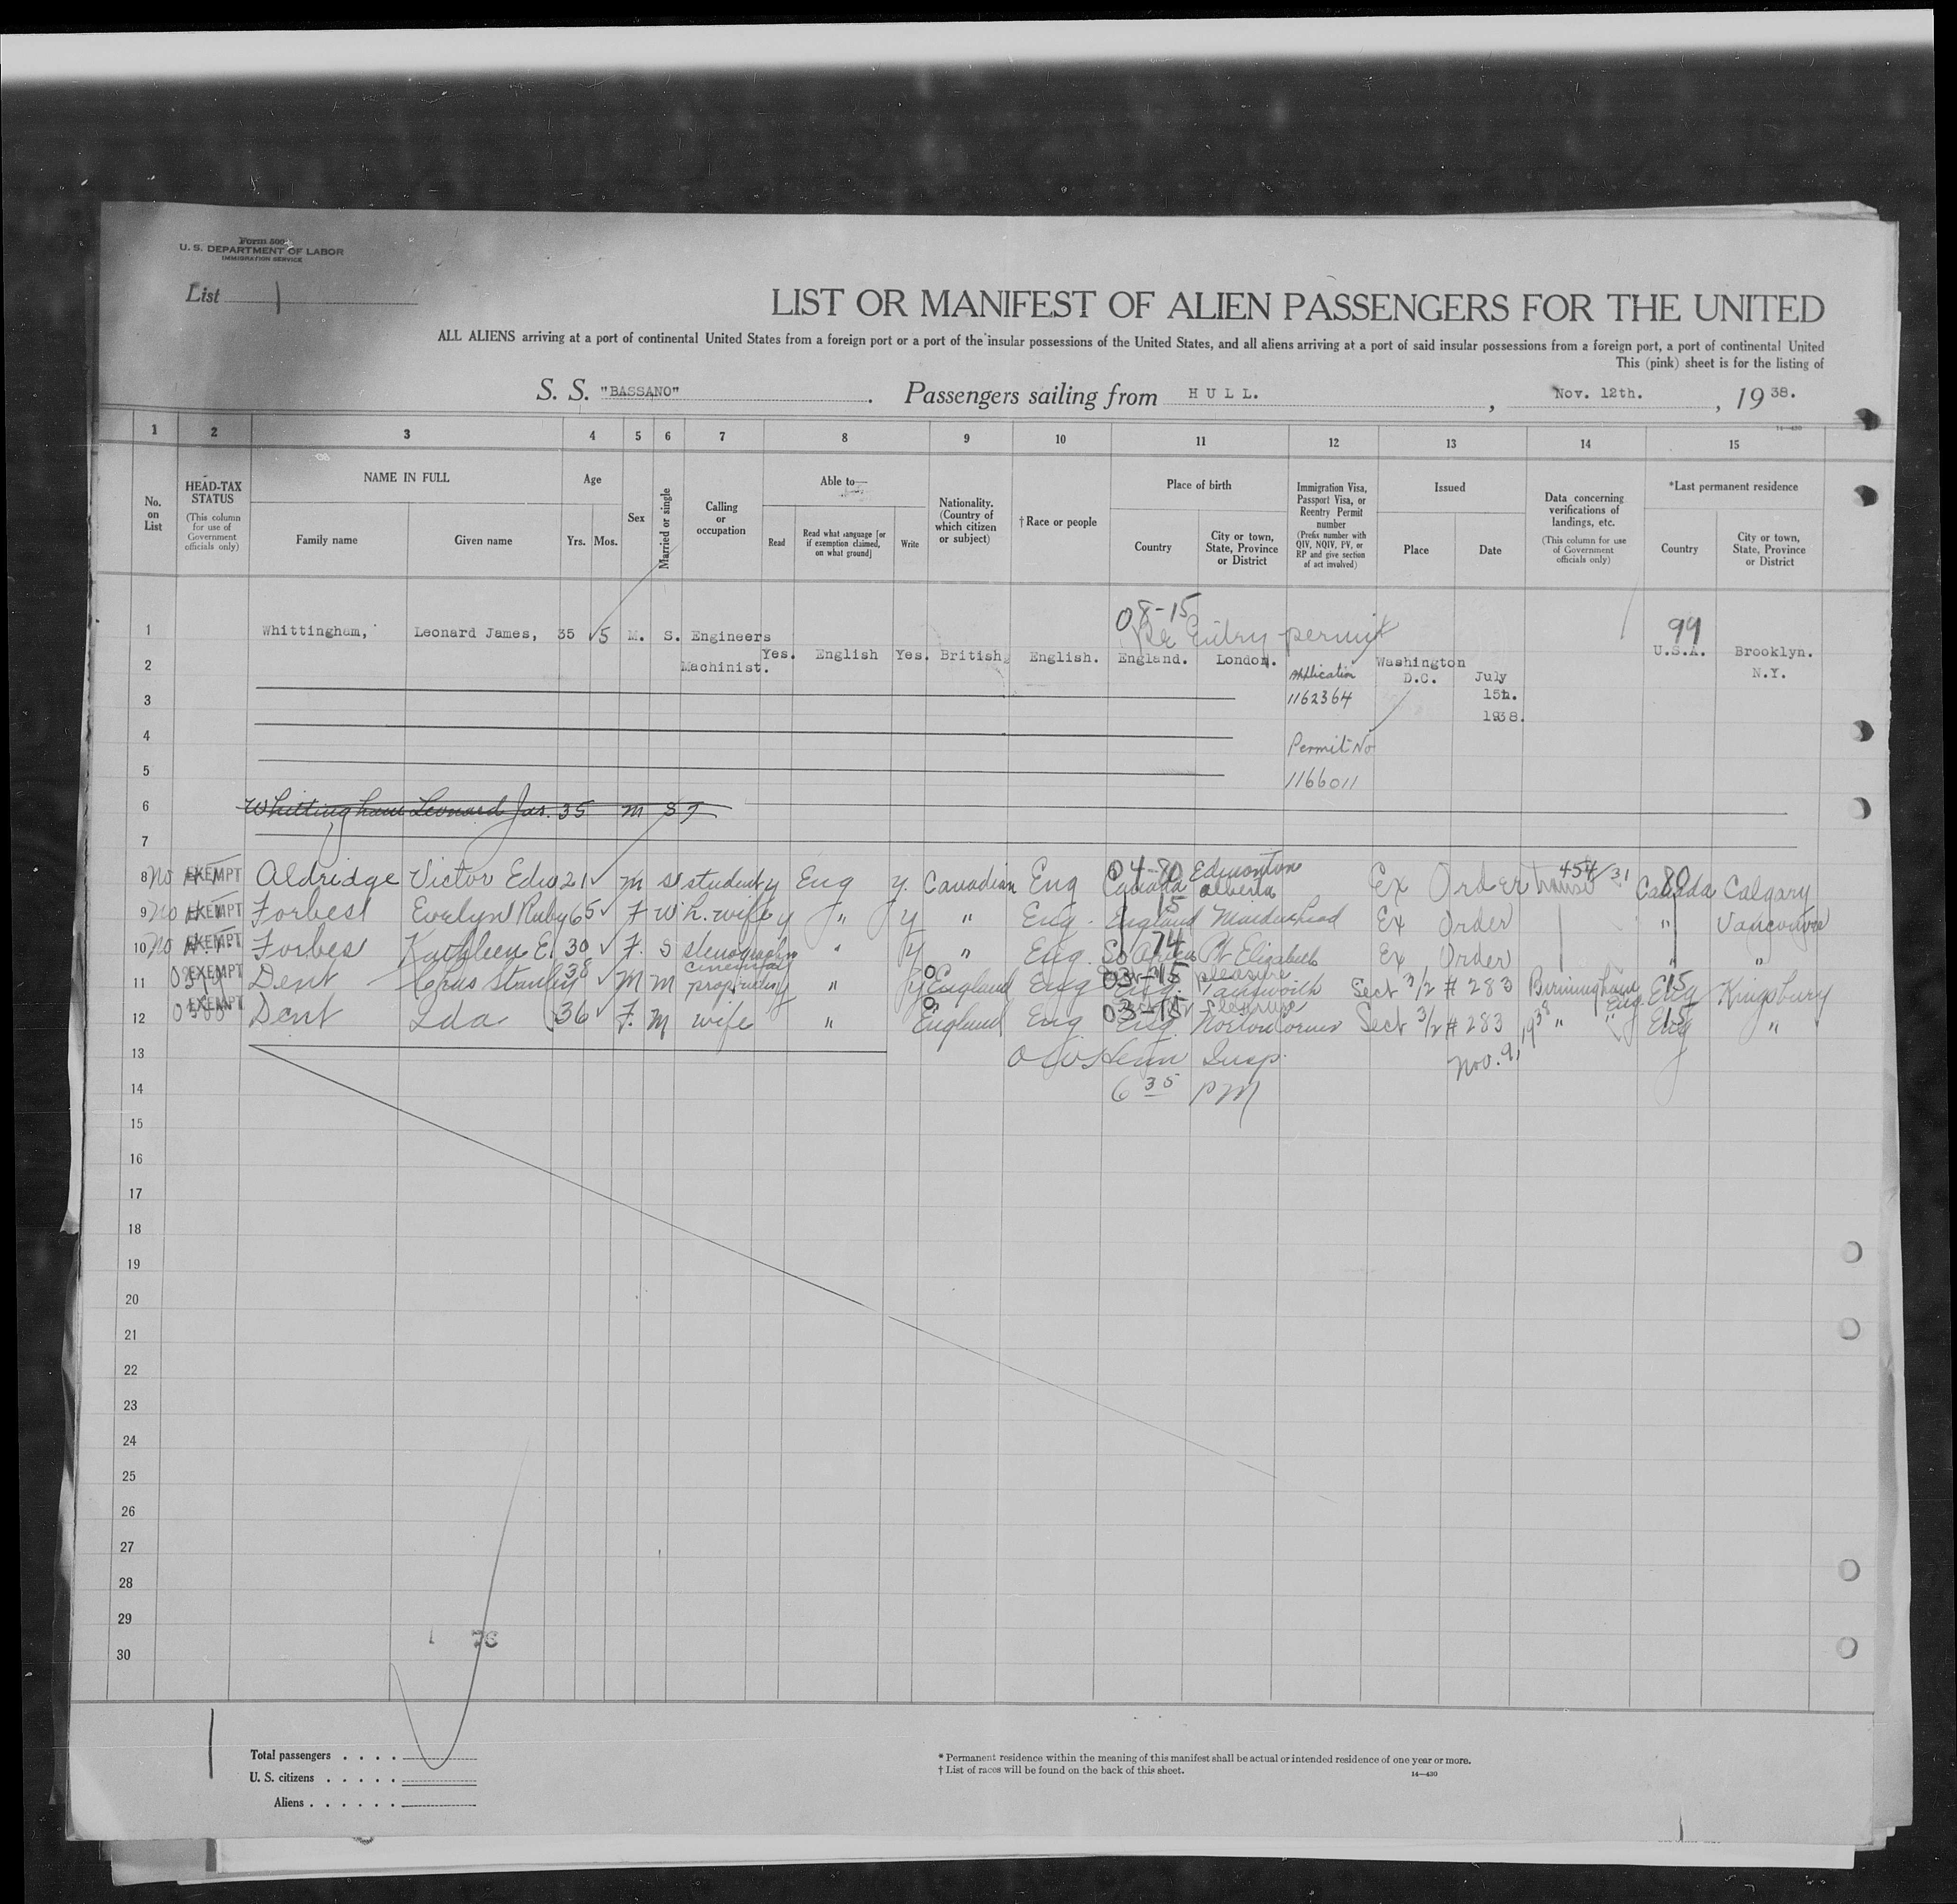 Form 500
U. S. DEPARTMENT OF LABOR
IMMIGRATION SERVICE
List 1
LIST OR MANIFEST OF ALIEN PASSENGERS FOR THE UNITED
ALL ALIENS arriving at a port of continental United States from a foreign port or a port of the insular possessions of the United States, and all aliens arriving at a port of said insular possessions from a foreign port, a port of continental United
This (pink) sheet is for the listing of
S. S. "BASSANO". Passengers sailing from HULL., Nov. 12th., 19 38.
14—430
1 2 3 4 5 6 7 8 9 10 11 12 13 14 15
No. on List
HEAD-TAX STATUS (This column for use of Government officials only)
NAME IN FULL
Family name Given name
Age
Yrs. Mos.
Sex
Married or single
Calling or occupation
Able to—
Read Read what language [or if exemption claimed, on what ground] Write
Nationality. (Country of which citizen or subject)
†Race or people
Place of birth
Country City or town, State, Province or District
Immigration Visa, Passport Visa, or Reentry Permit number (Prefix number with QIV, NQIV, PV, or RP and give section of act involved)
Issued
Place Date
Data concerning verifications of landings, etc. (This column for use of Government officials only)
*Last permanent residence
Country City or town, State, Province or District
08-15
Re Entry permit
99
1 Whittingham, Leonard James, 35 5 M. S. Engineers
2 Machinist. Yes. English Yes. British English. England. London. U.S.A. Brooklyn.
Application Washington D.C. July N.Y.
3 1162364 15th.
1938.
4 Permit No
5 1166011
6 Whittingham Leonard Jas. 35 m S
7
8 No H.T EXEMPT Aldridge Victor Edw 21 m s student y Eng y. Canadian Eng 04-80 Canada Edmonton Alberta Ex Order transit 454/31 80 Canada Calgary
9 No H.T EXEMPT Forbes Evelyn Ruby 65 F W h. wife y " y " Eng. 15 England Maidenhead Ex Order " Vancouver
10 No H.T EXEMPT Forbes Kathleen E. 30 F. S stenographer " y " Eng. 74 So Africa Pt Elizabeth Ex Order " "
11 EXEMPT Dent Stanley 38 M m cinema proprietor y " y England Eng 03-15 Eng. pleasure Tamworth Sect 3/2 # 283 Birmingham Eng. 15 Eng Kingsbury
12 EXEMPT Dent Ida 36 F. M wife " England Eng 03-15 Eng. pleasure Norton Sect 3/2 # 283 1938 " " 15 Eng "
13 Insp. Nov. 9,
14 6 35 PM
15
16
17
18
19
20
21
22
23
24
25
26
27
28
29
76
30
Total passengers
U. S. citizens
Aliens
* Permanent residence within the meaning of this manifest shall be actual or intended residence of one year or more.
† List of races will be found on the back of this sheet. 14—430